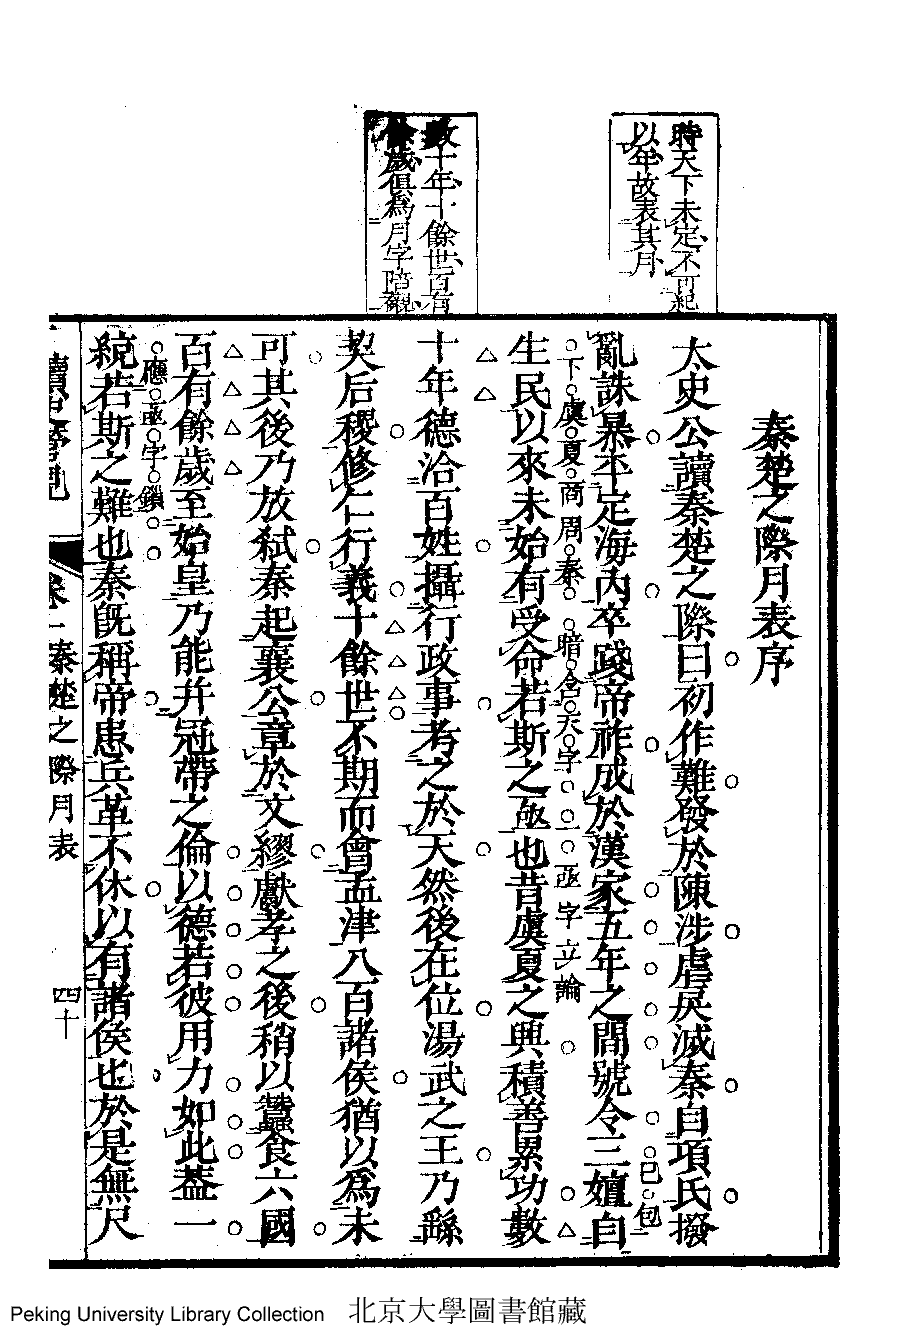 時天下未定不可紀
以年故表其月
數十年十餘世百有
餘歲俱為月字暗襯
秦楚之際月表序
太史公讀秦楚之際曰初作難發於陳涉虐戾滅秦自項氏撥
已包
亂誅暴平定海內卒踐帝祚成於漢家五年之間號令三嬗自
下虞夏商周秦暗含天字一亟字立論
生民以來未始有受命若斯之亟也昔虞夏之興積善累功數
十年德洽百姓攝行政事考之於天然後在位湯武之王乃繇
契后稷修仁行義十餘世不期而會孟津八百諸侯猶以為未
可其後乃放弒秦起襄公章於文繆獻孝之後稍以蠶食六國
百有餘歲至始皇乃能并冠帶之倫以德若彼用力如此蓋一
應亟字鎖
統若斯之難也秦既稱帝患兵革不休以有諸侯也於是無尺
卷一秦楚之際月表
四十
Peking University Library Collection 北京大學圖書館藏